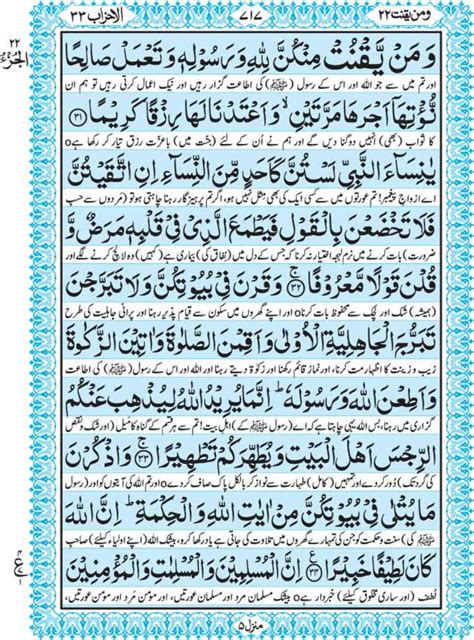 ومن يقنت ٢٢ ٧١٧ الاحزاب ٣٣
وَمَنْ يَّقْنُتْ مِنْكُنَّ لِلّٰهِ وَرَسُوْلِهٖ وَتَعْمَلْ صَالِحًا
اور تم میں سے جو اللہ اور اس کے رسول (ﷺ) کی اطاعت گزار رہیں اور نیک اعمال کرتی رہیں تو ہم ان
نُّؤْتِهَآ اَجْرَهَا مَرَّتَيْنِ ۙ وَاَعْتَدْنَا لَهَا رِزْقًا كَرِيْمًا ٣١
کا ثواب (بھی) انہیں دوگنا دیں گے اور ہم نے اُن کے لئے (جنت میں) باعزّت رزق تیار کر رکھا ہے
يٰنِسَآءَ النَّبِيِّ لَسْتُنَّ كَاَحَدٍ مِّنَ النِّسَآءِ اِنِ اتَّقَيْتُنَّ
اے ازواجِ پیغمبر! تم عورتوں میں سے کسی ایک کی بھی مِثل نہیں ہو، اگر تم پرہیزگار رہنا چاہتی ہو تو (مَردوں سے حسبِ
فَلَا تَخْضَعْنَ بِالْقَوْلِ فَيَطْمَعَ الَّذِيْ فِيْ قَلْبِهٖ مَرَضٌ وَّ
ضرورت) بات کرنے میں نرم لہجہ اختیار نہ کرنا کہ جس کے دل میں (نِفاق کی) بیماری ہے (کہیں) وہ لالچ کرنے لگے اور
قُلْنَ قَوْلًا مَّعْرُوْفًا ٣٢ ۚ وَقَرْنَ فِيْ بُيُوْتِكُنَّ وَلَا تَبَرَّجْنَ
(ہمیشہ) شک اور لچک سے محفوظ بات کرنا اور اپنے گھروں میں سکون سے قیام پذیر رہنا اور پرانی جاہلیت کی طرح
تَبَرُّجَ الْجَاهِلِيَّةِ الْاُوْلٰى وَاَقِمْنَ الصَّلٰوةَ وَاٰتِيْنَ الزَّكٰوةَ
زیب و زینت کا اظہار مت کرنا، اور نماز قائم رکھنا اور زکوٰۃ دیتے رہنا اور اللہ اور اس کے رسول (ﷺ) کی اطاعت
وَاَطِعْنَ اللّٰهَ وَرَسُوْلَهٗ ؕ اِنَّمَا يُرِيْدُ اللّٰهُ لِيُذْهِبَ عَنْكُمُ
گزاری میں رہنا، بس اللہ یہی چاہتا ہے کہ اے (رسول ﷺ کے) اہلِ بیت! تم سے ہر قسم کے گناہ کا میل (اور شک و نقص
الرِّجْسَ اَهْلَ الْبَيْتِ وَيُطَهِّرَكُمْ تَطْهِيْرًا ٣٣ ۚ وَاذْكُرْنَ
کی گرد تک) دُور کر دے اور تمہیں (کامل) طہارت سے نواز کر بالکل پاک صاف کر دے اور تم اللہ کی آیتوں کو اور
مَا يُتْلٰى فِيْ بُيُوْتِكُنَّ مِنْ اٰيٰتِ اللّٰهِ وَالْحِكْمَةِ ؕ اِنَّ اللّٰهَ
(رسول ﷺ کی) سنت و حکمت کو جن کی تمہارے گھروں میں تلاوت کی جاتی ہے یاد رکھا کرو، بیشک اللہ (اپنے اولیاء کیلئے) صاحبِ
كَانَ لَطِيْفًا خَبِيْرًا ٣٤ اِنَّ الْمُسْلِمِيْنَ وَالْمُسْلِمٰتِ وَالْمُؤْمِنِيْنَ
لُطف (اور ساری مخلوق کیلئے) خبردار ہے بیشک مسلمان مرد اور مسلمان عورتیں، اور مومن مَرد اور مومن عورتیں،
منزل ٥